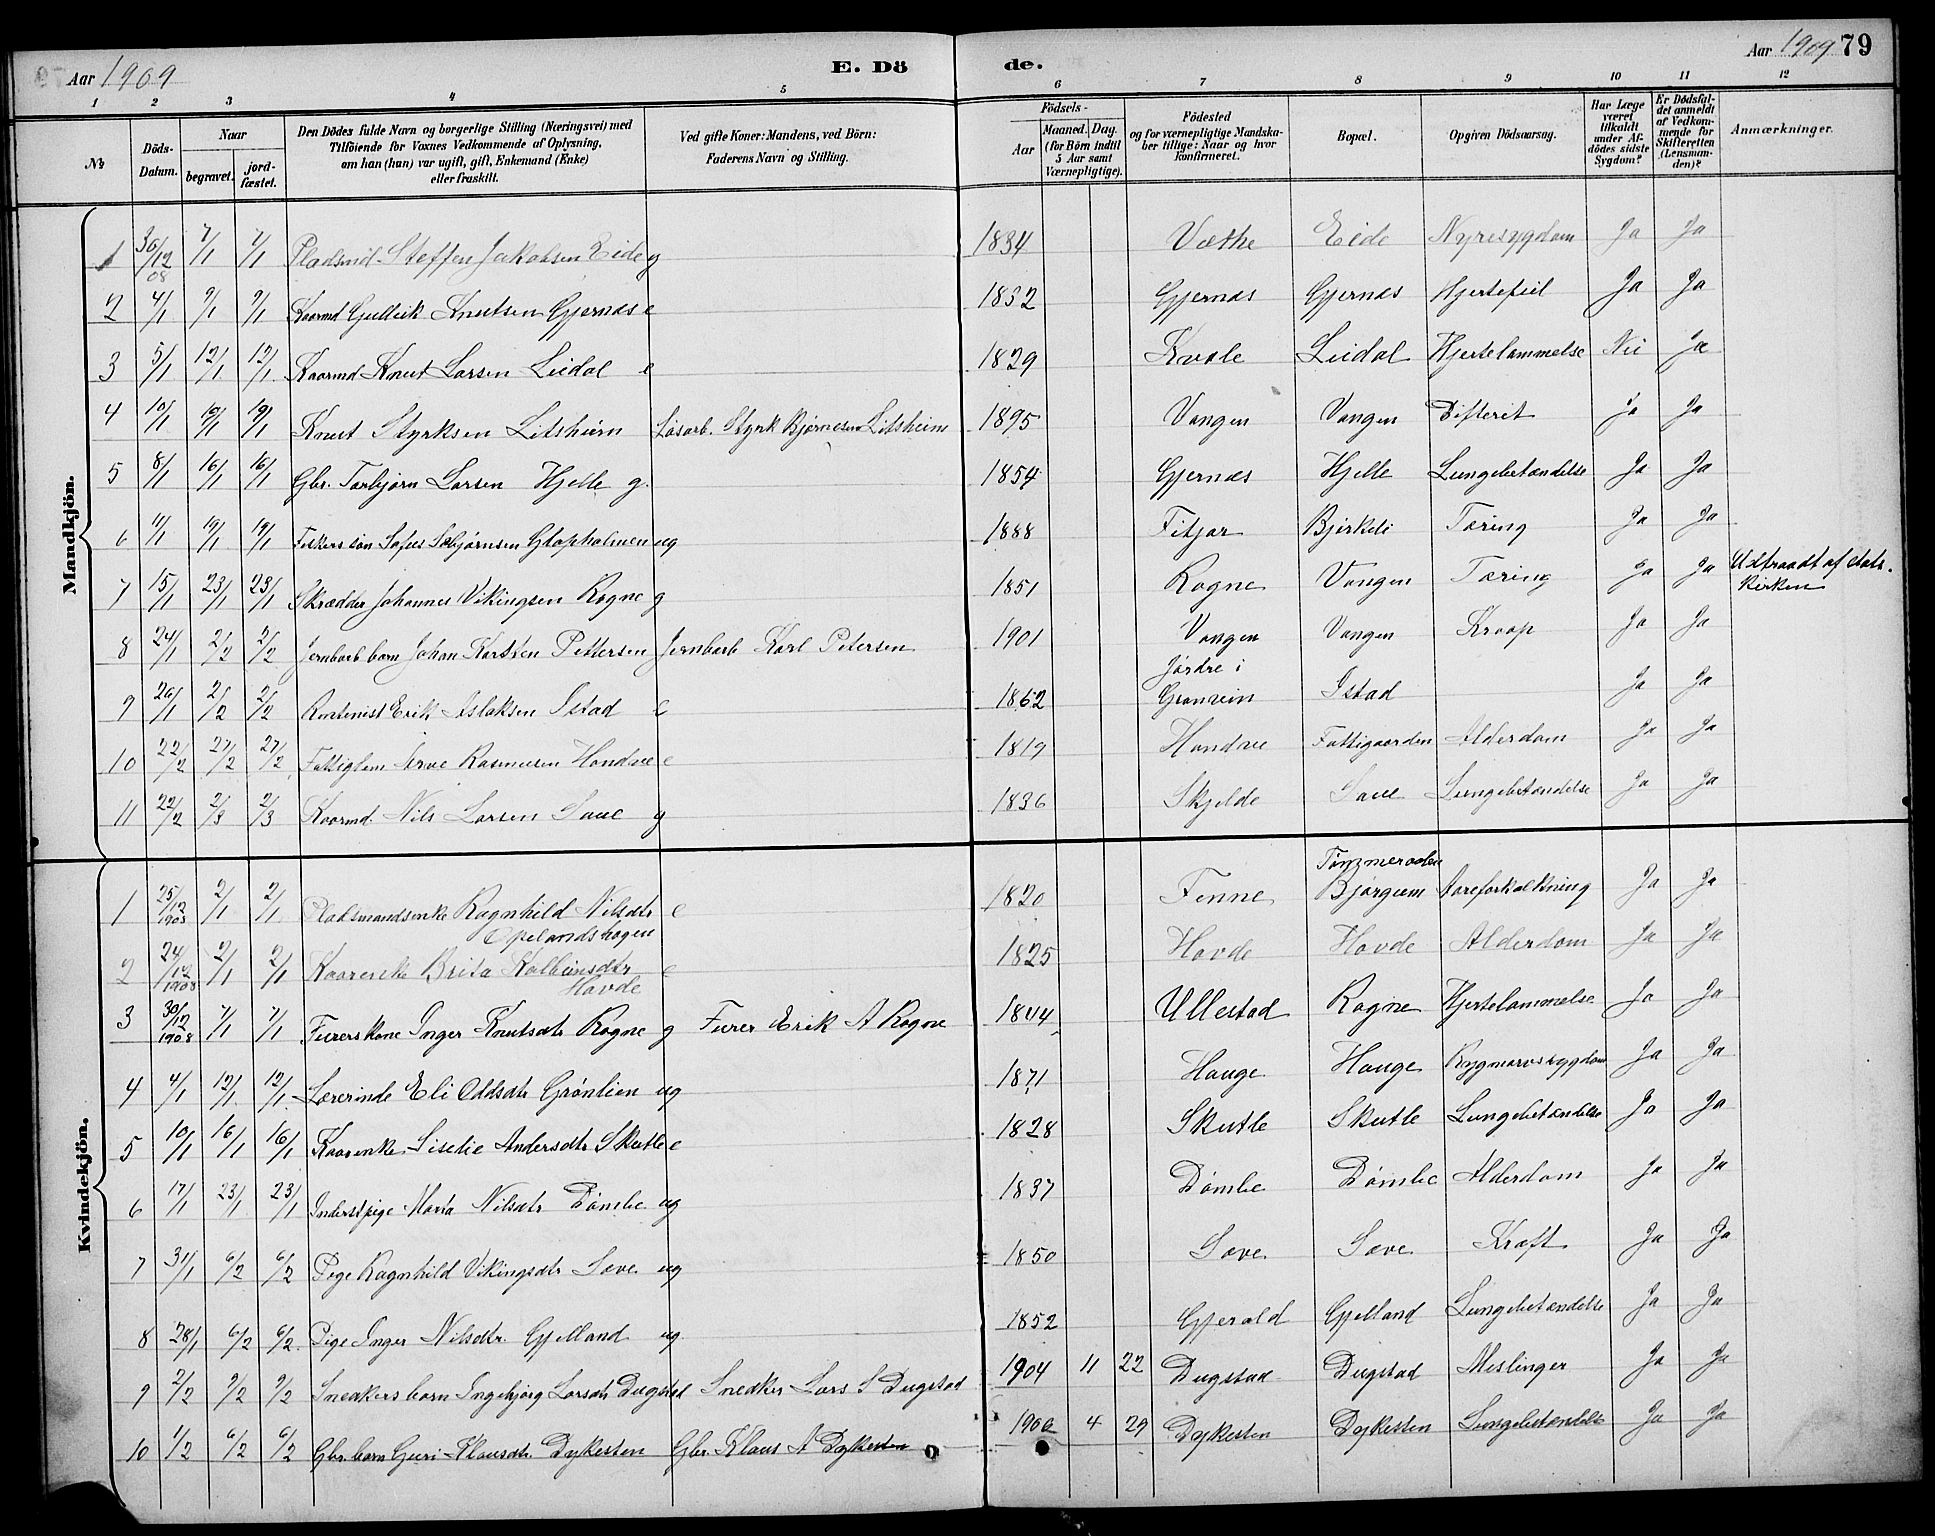 Aar 1909
E. Dö
de.
Aar 1909 79
1 2 3 4 5 6 7 8 9 10 11 12
No
Döds-Datum.
Naar
begravet.
jord-fæstet.
Den Dödes fulde Navn og borgerlige Stilling (Næringsvei) med
Tilföiende for Voxnes Vedkommende af Oplysning,
om han (hun) var ugift, gift, Enkemand (Enke)
eller fraskilt.
Ved gifte Koner: Mandens, ved Börn:
Faderens Navn og Stilling.
Födsels-
Aar
Maaned. Dag.
(for Börn indtil
5 Aar samt
Værnepligtige).
Födested
og for værnepligtige Mandska-
ber tillige: Naar og hvor
konfirmeret.
Bopæl.
Opgiven Dödsaarsag.
Har Læge
været
tilkaldt
under Af-
dödes sidste
Sygdom?
Er Dödsfal-
det anmeldt
af Vedkom-
mende for
Skifteretten
(Lensman-
den)?
Anmærkninger.
Mandkjön.
1 30/12 08 7/1 7/1 Pladsmd. Steffen Jakobsen Eide g 1834 Væthe Eide Nyresygdom Ja Ja
2 4/1 9/1 9/1 Kaarmd Gulleik Knutsen Gjernes e 1832 Gjernes Gjernes Hjertefeil Ja Ja
3 5/1 12/1 12/1 Kaarmd Knut Larsen Lidal e 1829 Kvale Lidal Hjertelammelse Nei Ja
4 10/1 19/1 19/1 Knut Styrksen Litsheim Løsarb. Styrk Bjørnesen Litsheim 1895 Vangen Vangen Difterit Ja Ja
5 8/1 16/1 16/1 Gbr. Torbjørn Larsen Hjelle g. 1854 Gjernes Hjelle Lungebetændelse Ja Ja
6 11/1 19/1 19/1 Fiskers søn Sofus Glopholmen ug 1888 Fitjar Bjørkeli Tæring Ja Ja
7 15/1 23/1 23/1 Skrædder Johannes Vikingsen Rogne g 1851 Rogne Vangen Tæring Ja Ja Udtraadt af stats-
kirken
8 24/1 2/2 2/2 Jernbarb barn Johan Karsten Pettersen Jernbarb Karl Petersen 1901 Vangen Vangen Kroop Ja Ja
9 26/1 2/2 2/2 Rentenist Erik Aslaksen Istad e 1862 Jørdre i
Granvin Istad Ja Ja
10 22/2 27/2 27/2 Fattiglem Arve Rasmusen Hondve e 1819 Hondve Fattiggaarden Alderdom Ja Ja
11 22/2 2/3 2/3 Kaarmd. Nils Larsen Saue g 1836 Skjelde Saue Lungebetændelse Ja Ja
Kvindekjön.
1 25/12 1908 2/1 2/1 Pladsmandsenke Ragnhild Nilsdtr e
Opelandshagen 1820 Fenne Bjørgum Aareforkalkning Ja Ja
2 24/12 1908 2/1 2/1 Kaarenke Brita Kolbeinsdtr e
Hovde 1825 Hovde Hovde Alderdom Ja Ja
3 30/12 1908 7/1 7/1 Furerskone Inger Knutsdtr Rogne g Furer Erik A Rogne 1844 Ullestad Rogne Hjertelammelse Ja Ja
4 4/1 12/1 12/1 Lærerinde Eli Oddsdtr Grønlien ug 1871 Hauge Hauge Rygmarvssygdom Ja Ja
5 10/1 16/1 16/1 Kaarenke Siselie Andersdtr Skutle e 1828 Skutle Skutle Lungebetændelse Ja Ja
6 17/1 23/1 23/1 Inderstpige Marta Nilsdtr Dømbe ug 1837 Dømbe Dømbe Alderdom Ja Ja
7 31/1 6/2 6/2 Pige Ragnhild Vikingsdtr Save ug 1850 Save Save Kræft Ja Ja
8 28/1 6/2 6/2 Pige Inger Nilsdtr. Gjelland ug 1852 Gjerald Gjelland Lungebetændelse Ja Ja
9 2/2 9/2 9/2 Snedkers barn Ingebjørg Larsdtr Dugstad Snedker Lars S Dugstad 1904 11 22 Dugstad Dugstad Meslinger Ja Ja
10 1/2 6/2 6/2 Gbr. barn Guri Klausdtr. Dykesten Gbr. Klaus A Dykesten 1906 4 29 Dykesten Dykesten Lungebetændelse Ja Ja